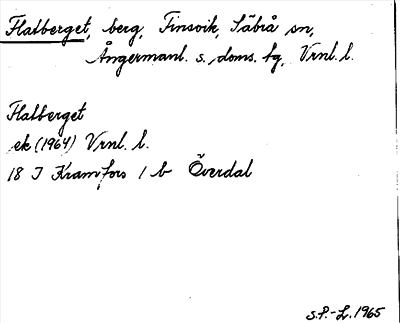 Flatberget, berg, Finsvik, Säbrå sn,
Ångermanl. s. doms. tg, Vrnl. l.
Flatberget
ek (1964) Vrnl. l.
18 J Kramfors 1 b Överdal
S.P.-L. 1965